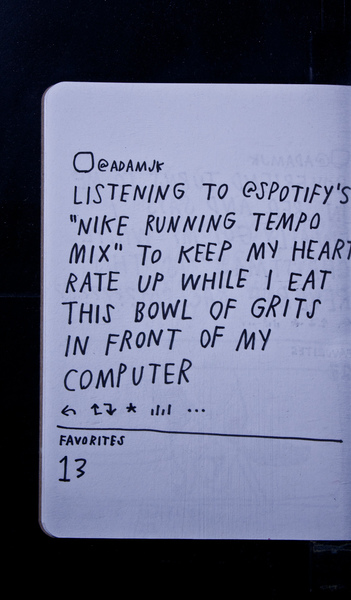 @ADAMJK
LISTENING TO @SPOTIFY'S
"NIKE RUNNING TEMPO
MIX" TO KEEP MY HEART
RATE UP WHILE I EAT
THIS BOWL OF GRITS
IN FRONT OF MY
COMPUTER
FAVORITES
13